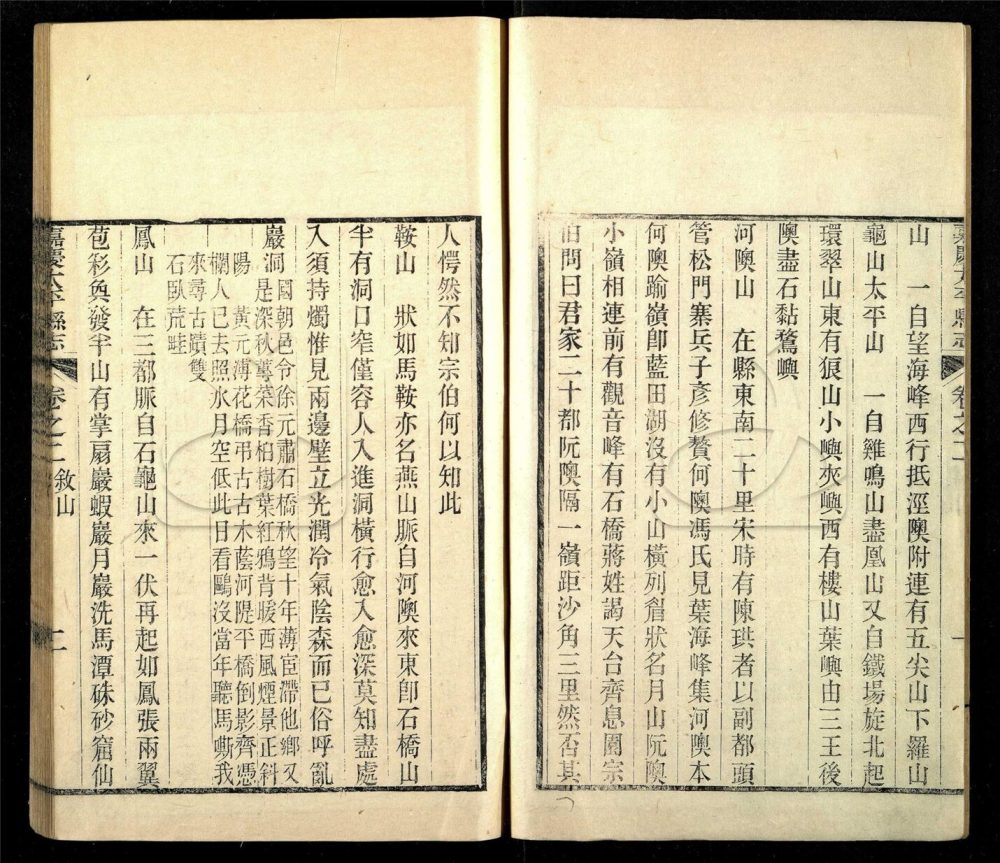 山　一自望海峰西行抵涇隩附連有五尖山下羅山
龜山太平山　一自雞鳴山盡凰山又自鐵場旋北起
環翠山東有狼山小嶼夾嶼西有樓山葉嶼由三王後
隩盡石黏鶩嶼
河隩山　在縣東南二十里宋時有陳珙者以副都頭
管松門寨兵子彥修贅何隩馮氏見葉海峰集河隩本
何隩踰嶺卽藍田湖沒有小山橫列眉狀名月山阮隩
小嶺相連前有觀音峰有石橋蔣姓謁天台齊息園宗
伯問曰君家二十都阮隩隔一嶺距沙角三里然否其
人愕然不知宗伯何以知此
鞍山　狀如馬鞍亦名燕山脈自河隩來東卽石橋山
半有洞口窄僅容人入進洞橫行愈入愈深莫知盡處
入須持燭惟見兩邊壁立光潤冷氣陰森而已俗呼亂
巖洞
國朝邑令徐元肅石橋秋望十年薄宦滯他鄉又
是深秋蓴菜香柏樹葉紅鴉背暖西風煙景正斜
陽　黃元溥花橋弔古古木蔭河隄平橋倒影齊憑
欄人已去照水月空低此日看鷗沒當年聽馬嘶我
來尋古蹟雙
石臥荒畦
鳳山　在三都脈自石龜山來一伏再起如鳳張兩翼
苞彩奐發半山有掌扇巖蝦巖月巖洗馬潭硃砂窟仙
嘉慶太平縣志
卷之二
敘山
二